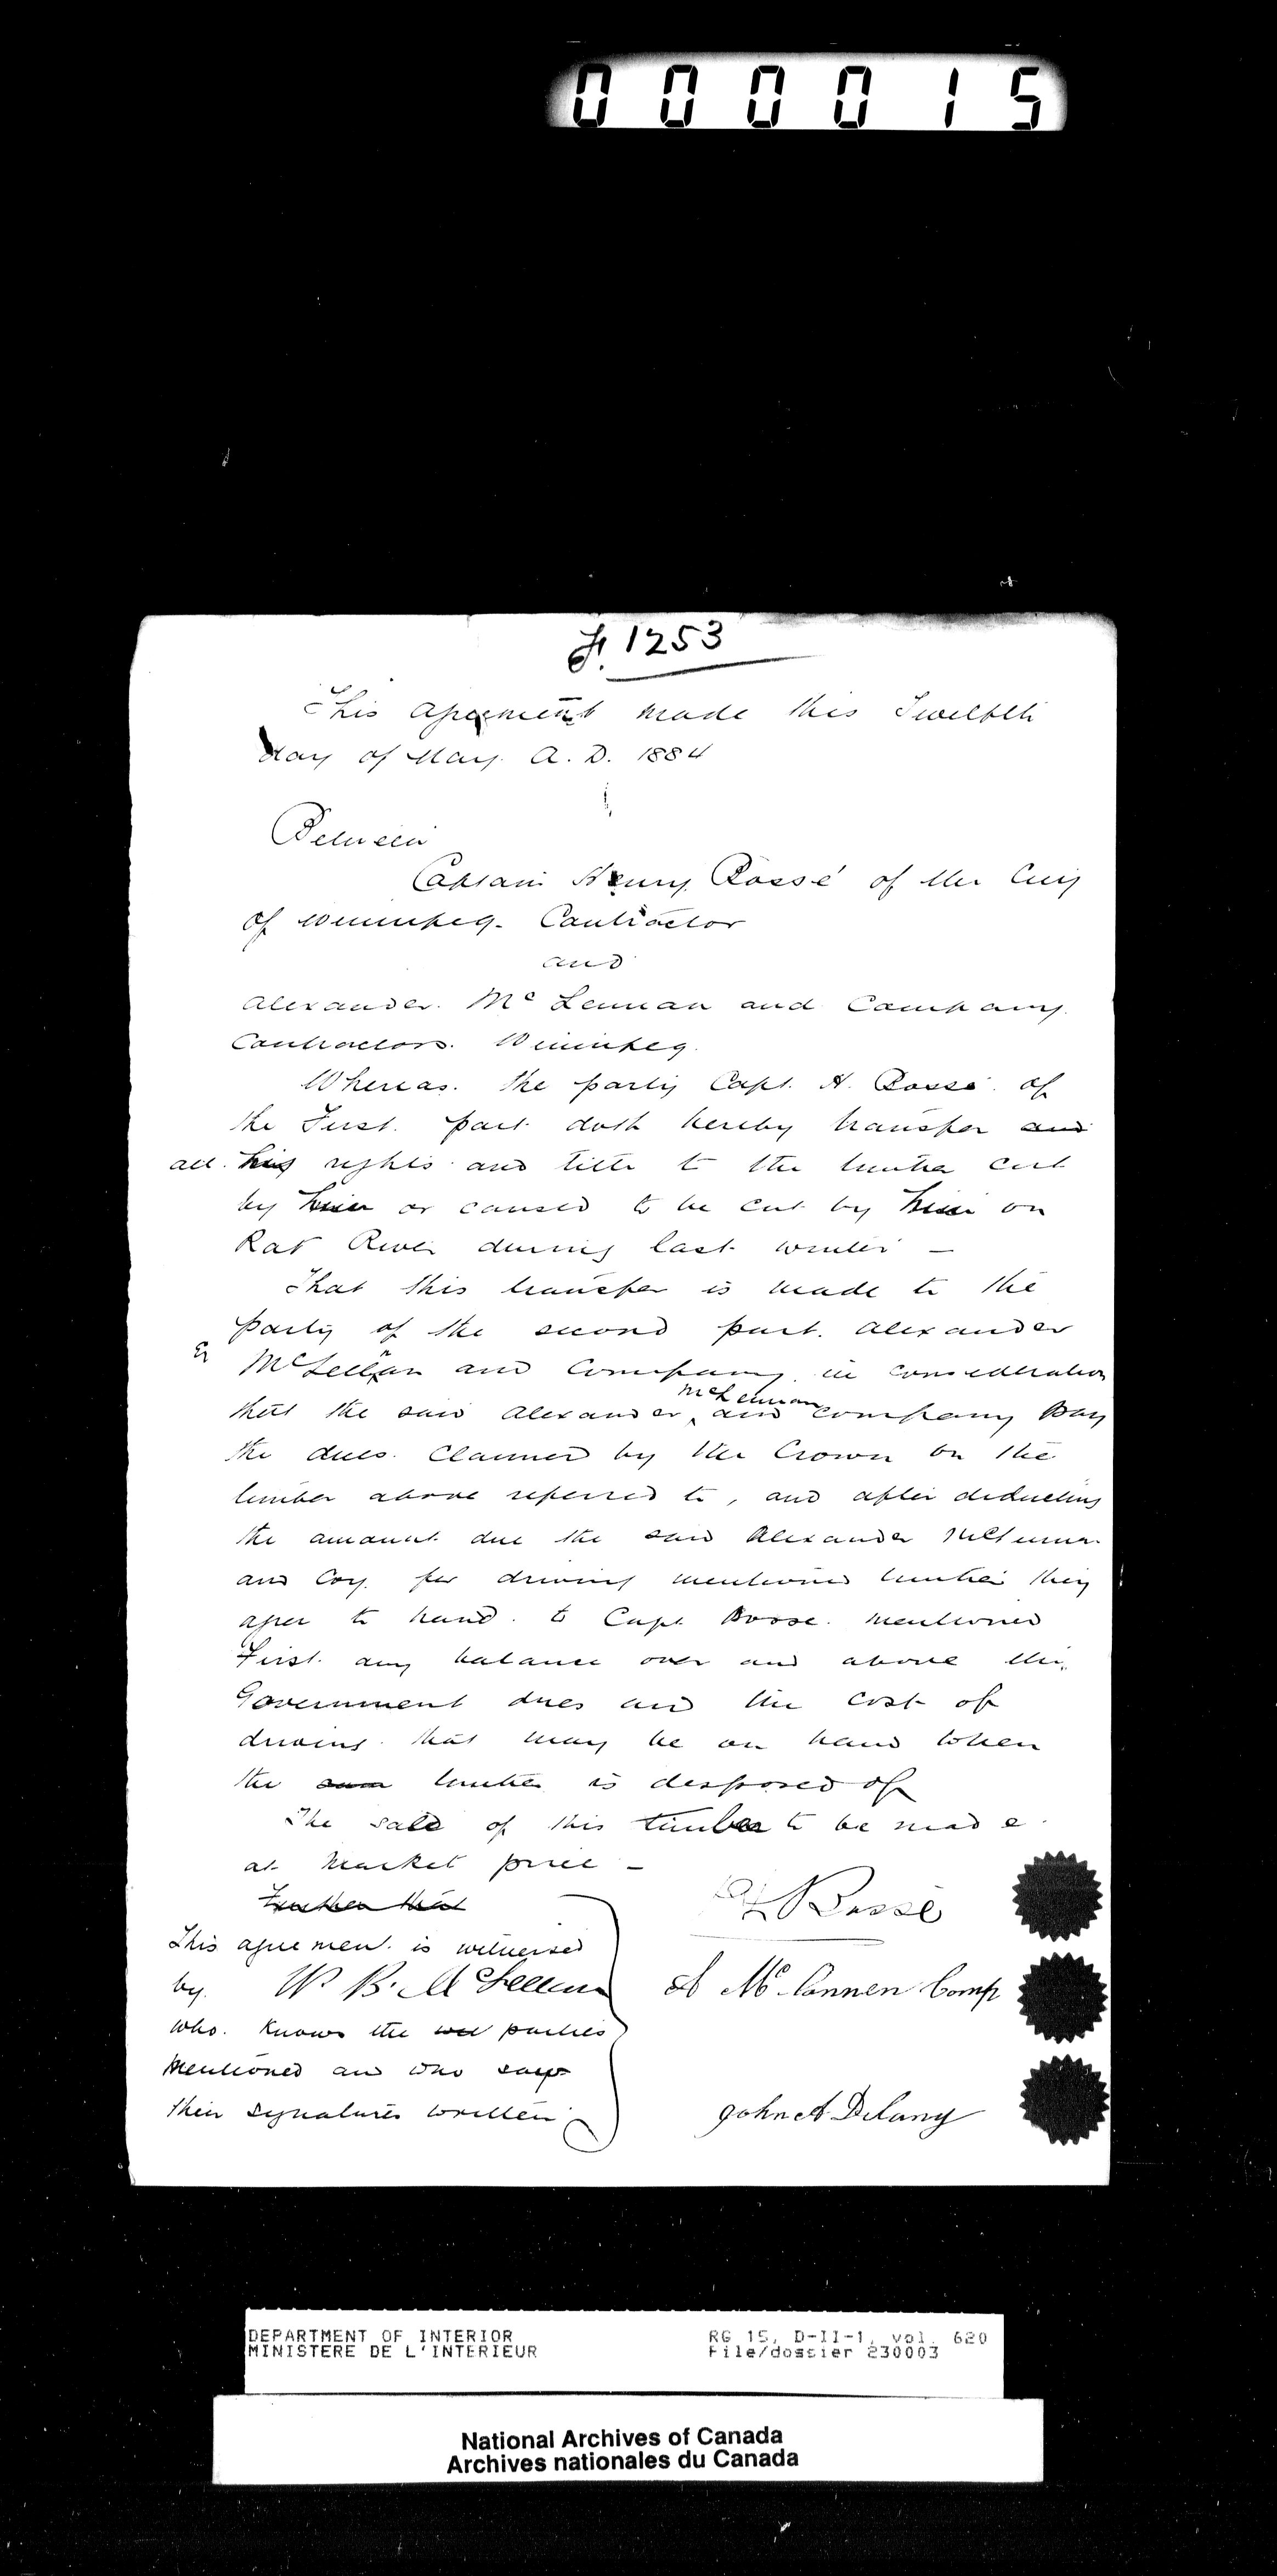 000015
F. 1253
This agreement made this Twelfth
day of May. A. D. 1884
Between
Captain Henry Bossé of the City
of Winnipeg. Contractor
and
Alexander. Mc Lennan and Company.
Contractors. Winnipeg.
Whereas. the party Capt. H. Bossé. of
the First. part doth hereby transfer and
all. his rights and title to the timber cut
by him or caused to be cut by him on
Rat River during last winter —
That this transfer is made to the
party of the second part. Alexander
McLellan and Company. in consideration
that the said Alexander McLennan and company Pay
the dues. Claimed by the Crown on the
timber above referred to, and after deducting
the amount due the said Alexander McLennan
and Coy. for driving mentioned timber they
agree to hand. to Capt Bosse. mentioned
First. any balance over and above the
Government dues and the cost of
driving. that may be on hand when
the timber is desposed of
The sale of this timber to be made
at Market price —
Further that
H Bossé
This agreement. is witnessed
by. W B. McLellan
A Mc Lannen Comp
who. knows the parties
Mentioned and who says
their signatures written
John A Delany
DEPARTMENT OF INTERIOR
MINISTERE DE L'INTERIEUR
RG 15, D-II-1, vol. 620
File/dossier 230003
National Archives of Canada
Archives nationales du Canada